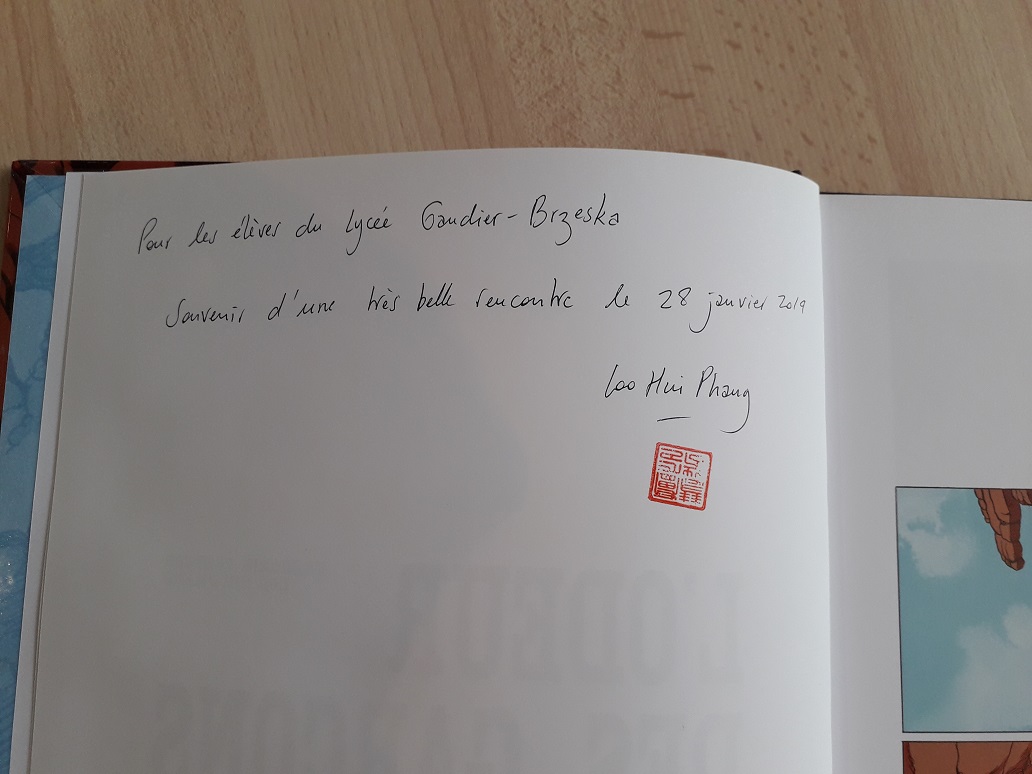 Pour les élèves du Lycée Gaudier-Brzeska
Souvenir d'une très belle rencontre le 28 janvier 2019
Loo Hui Phang